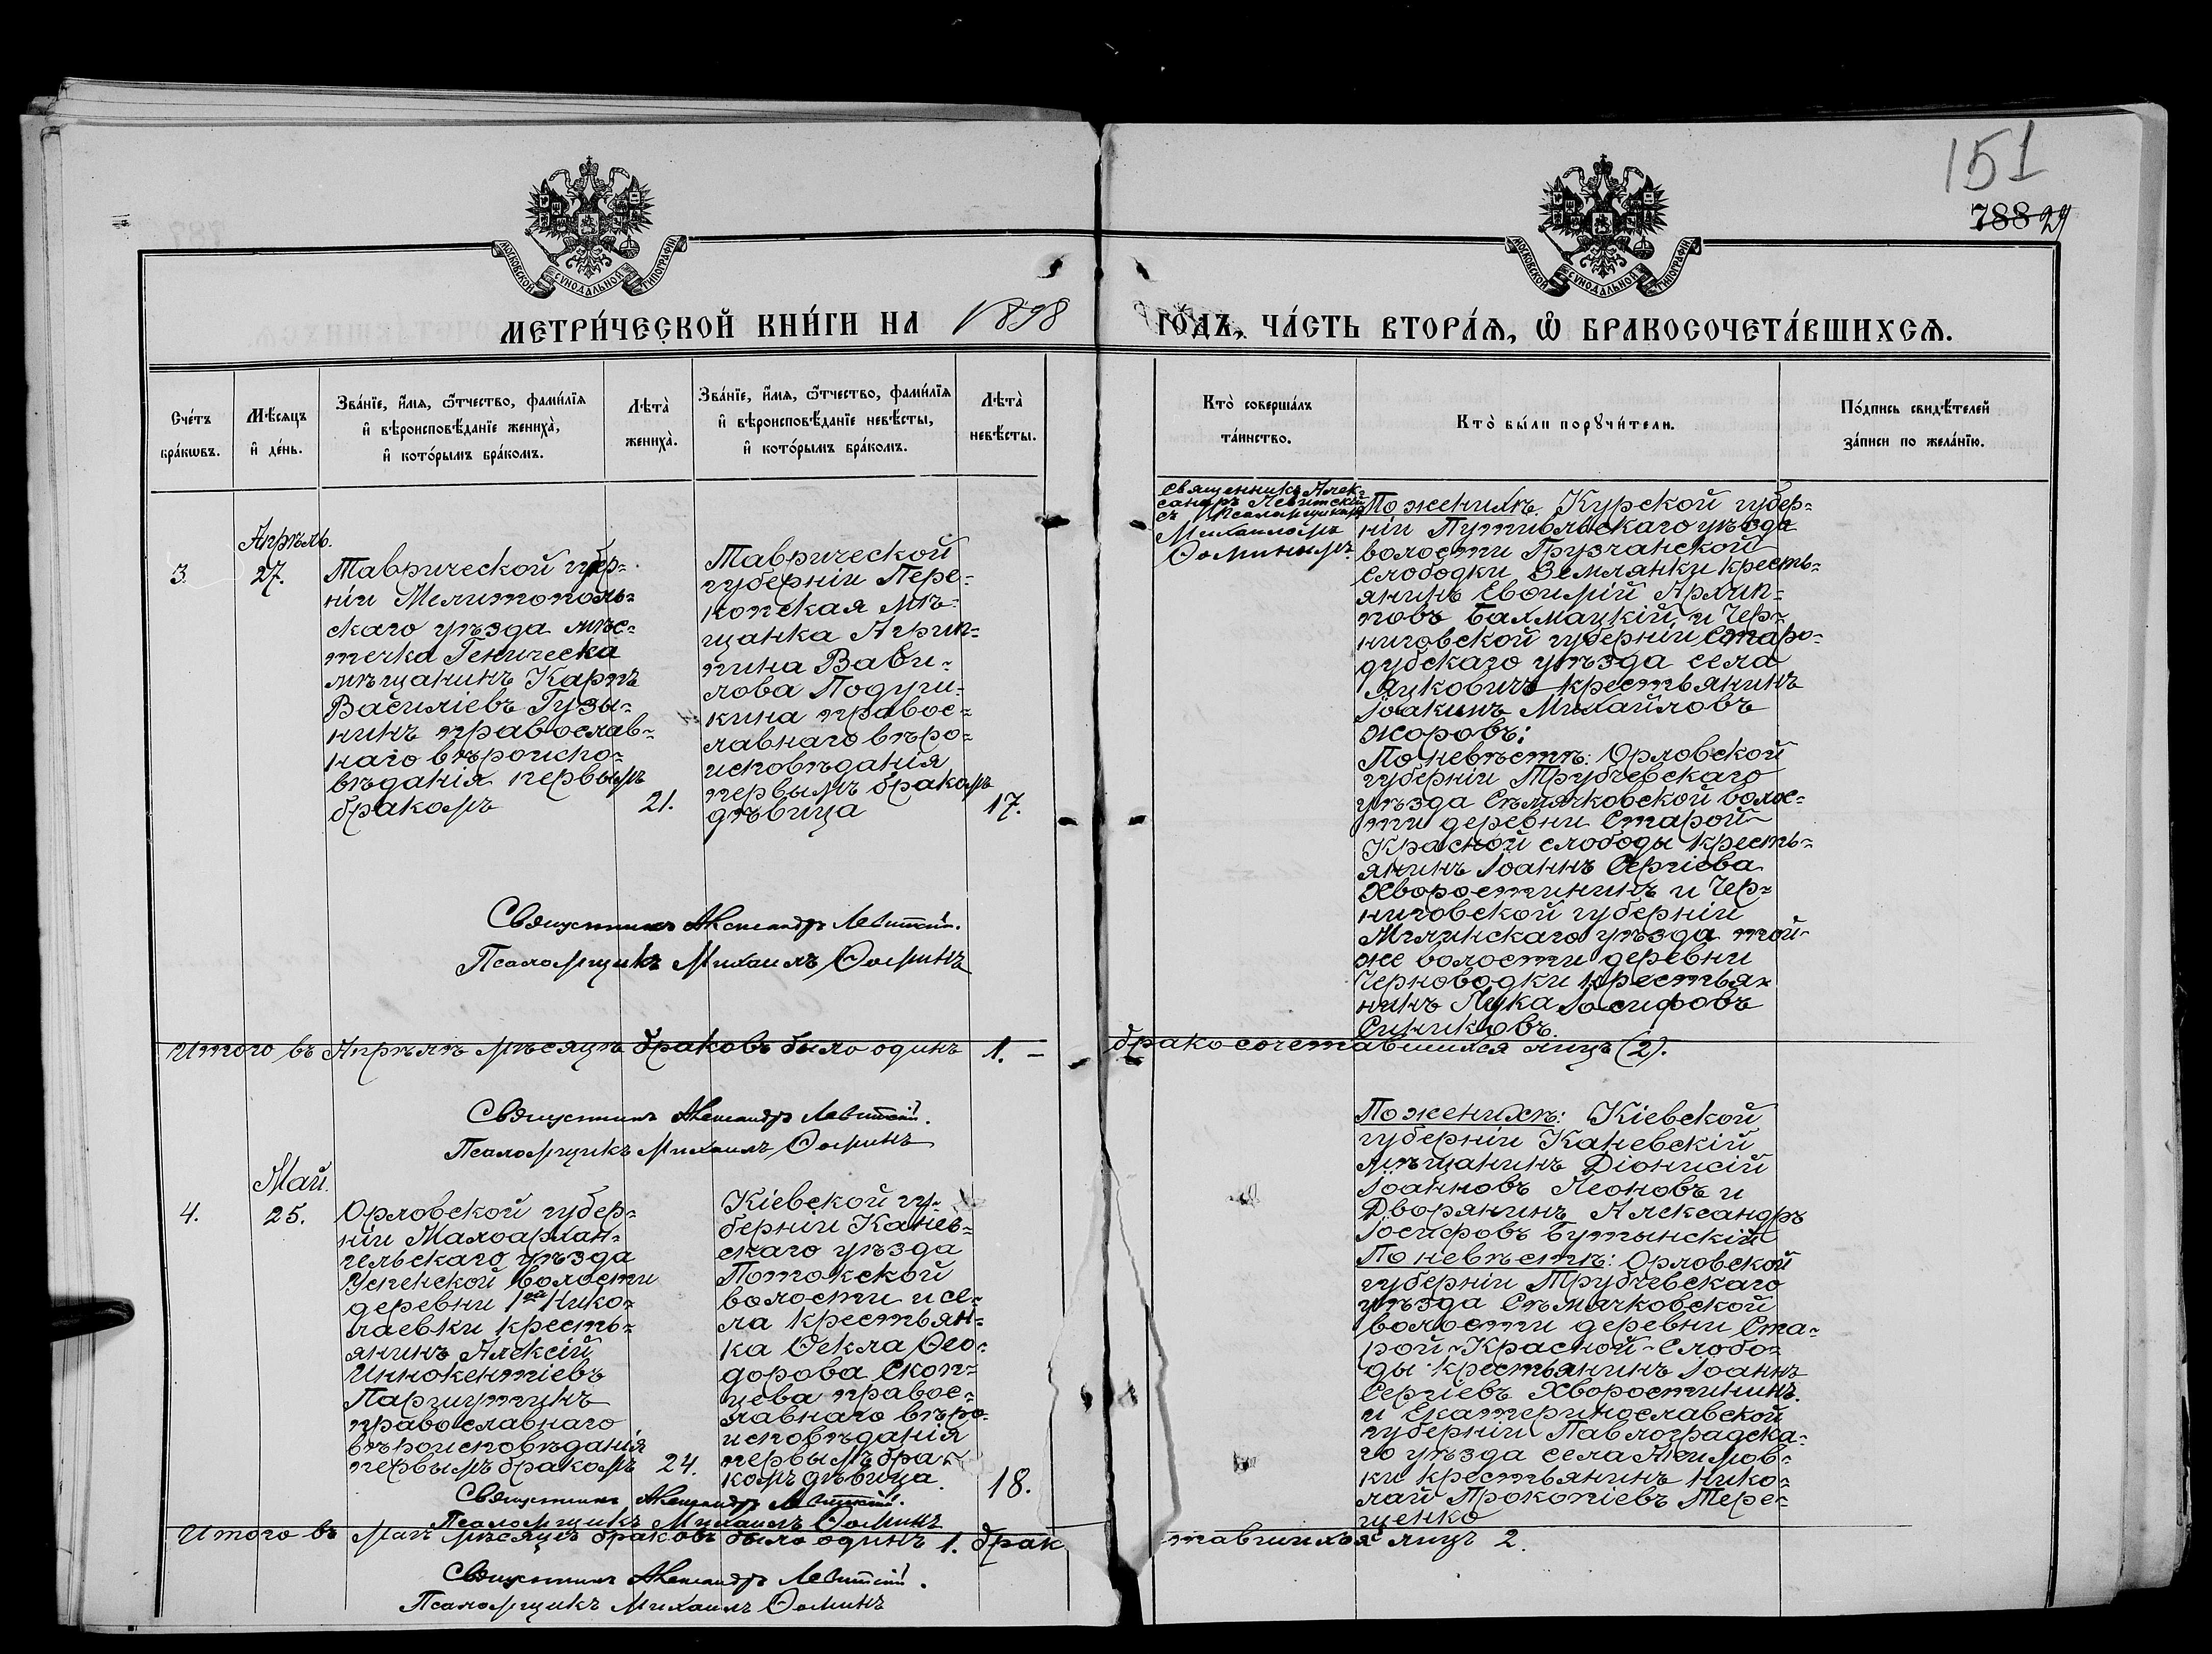 151
788 29
МОСКОВСКОЙ СѴНОДАЛЬНОЙ ТИПОГРАФІИ
МОСКОВСКОЙ СѴНОДАЛЬНОЙ ТИПОГРАФІИ
МЕТРИ́ЧЕСКОЙ КНИ́ГИ НА 1898 ГО́ДЪ, ЧА́СТЬ ВТОРА́Ѧ, Ѽ БРАКОСОЧЕТА́ВШИХСѦ.
Сче́тъ
бра́кѡвъ.
Мѣ́сѧцъ
и҆ де́нь.
Зва́нїе, и҆́мѧ, ѻ҆́тчество, фамѝлїѧ
и҆ вѣроисповѣ́данїе жениха̀,
и҆ кото́рымъ бра́комъ.
Лѣта̀
жениха̀.
Зва́нїе, и҆́мѧ, ѻ҆́тчество, фамѝлїѧ
и҆ вѣроисповѣ́данїе невѣ́сты,
и҆ кото́рымъ бра́комъ.
Лѣта̀
невѣ́сты.
Кто̀ соверша́лъ
та́инство.
Кто̀ бы́ли порꙋчи́тели.
По́дпись свидѣ́телей
за́писи по жела́нїю.
Апрѣль.
3.
27.
Таврической губер=
ніи Мелитополь=
скаго уѣзда мѣс=
течка Геническа
мѣщанинъ Карпъ
Василіевъ Гузы=
нинъ православ=
наго вѣроиспо=
вѣданія первымъ
бракомъ
21.
Таврической
губерніи Пере=
копская мѣ=
щанка Агрип=
пина Вави=
лова Подуш=
кина правос=
лавнаго вѣро=
исповѣданія
первымъ бракомъ
дѣвица
17.
Священникъ Алек=
сандръ Левитскій
съ псаломщикомъ
Михаиломъ
Ѳоминымъ.
По женихѣ: Курской губер=
ніи Путивльскаго уѣзда
волости Грузчанской
слободки Землянки кресть=
янинъ Евѳимій Архип=
повъ Бахмацкій, и Чер=
ниговской губерніи Старо=
дубскаго уѣзда села
Яцковичъ крестьянинъ
Іоакимъ Михайловъ
Жоровъ;
По невѣстѣ: Орловской
губерніи Трубчевскаго
уѣзда Сѣмячковской волос=
ти деревни Старой
Красной слободы кресть=
янинъ Іоаннъ Сергіева
Хворостининъ и Чер=
ниговской губерніи
Мглинскаго уѣзда той
же волости деревни
Черноводки крестья=
нинъ Лука Іосифовъ
Синиковъ.
Священникъ Александръ Левитскій.
Псаломщикъ Михаилъ Ѳоминъ
Итого въ Апрѣлѣ мѣсяцѣ браковъ было одинъ 1. – бракосочетавшихся лицъ (2).
Священникъ Александръ Левитскій.
Псаломщикъ Михаилъ Ѳоминъ
Май.
4.
25.
Орловской губер=
ніи Малоархан=
гельскаго уѣзда
Успенской волости
деревни 1ой Нико=
лаевки кресть=
янинъ Алексій
Иннокентіевъ
православнаго
вѣроисповѣданія
первымъ бракомъ
24.
Кіевской гу=
берніи Канев=
скаго уѣзда
Потокской
волости и се=
ла крестьян=
ка Ѳекла Ѳео=
дорова Скоп=
цова правос=
лавнаго вѣро=
исповѣданія
первымъ бра=
комъ дѣвица.
18.
По женихѣ: Кіевской
губерніи Каневскій
мѣщанинъ Діонисій
Іоанновъ Леоновъ и
Дворянинъ Александръ
Іосифовъ Бутынскій
По невѣстѣ: Орловской
губерніи Трубчевскаго
уѣзда Сѣмячковской
волости деревни Ста=
рой-Красной-Слобо=
ды крестьянинъ Іоаннъ
Сергіевъ Хворостининъ.
и Екатеринославской
губерніи Павлоградска=
го уѣзда села
ки крестьянинъ Нико=
лай Прокопіевъ Тере=
щенко
Священникъ Александръ Левитскій.
Псаломщикъ Михаилъ Ѳоминъ
Итого въ Маѣ мѣсяцѣ браковъ было одинъ 1. брак тавшихся лицъ 2.
Священникъ Александръ Левитскій.
Псаломщикъ Михаилъ Ѳоминъ